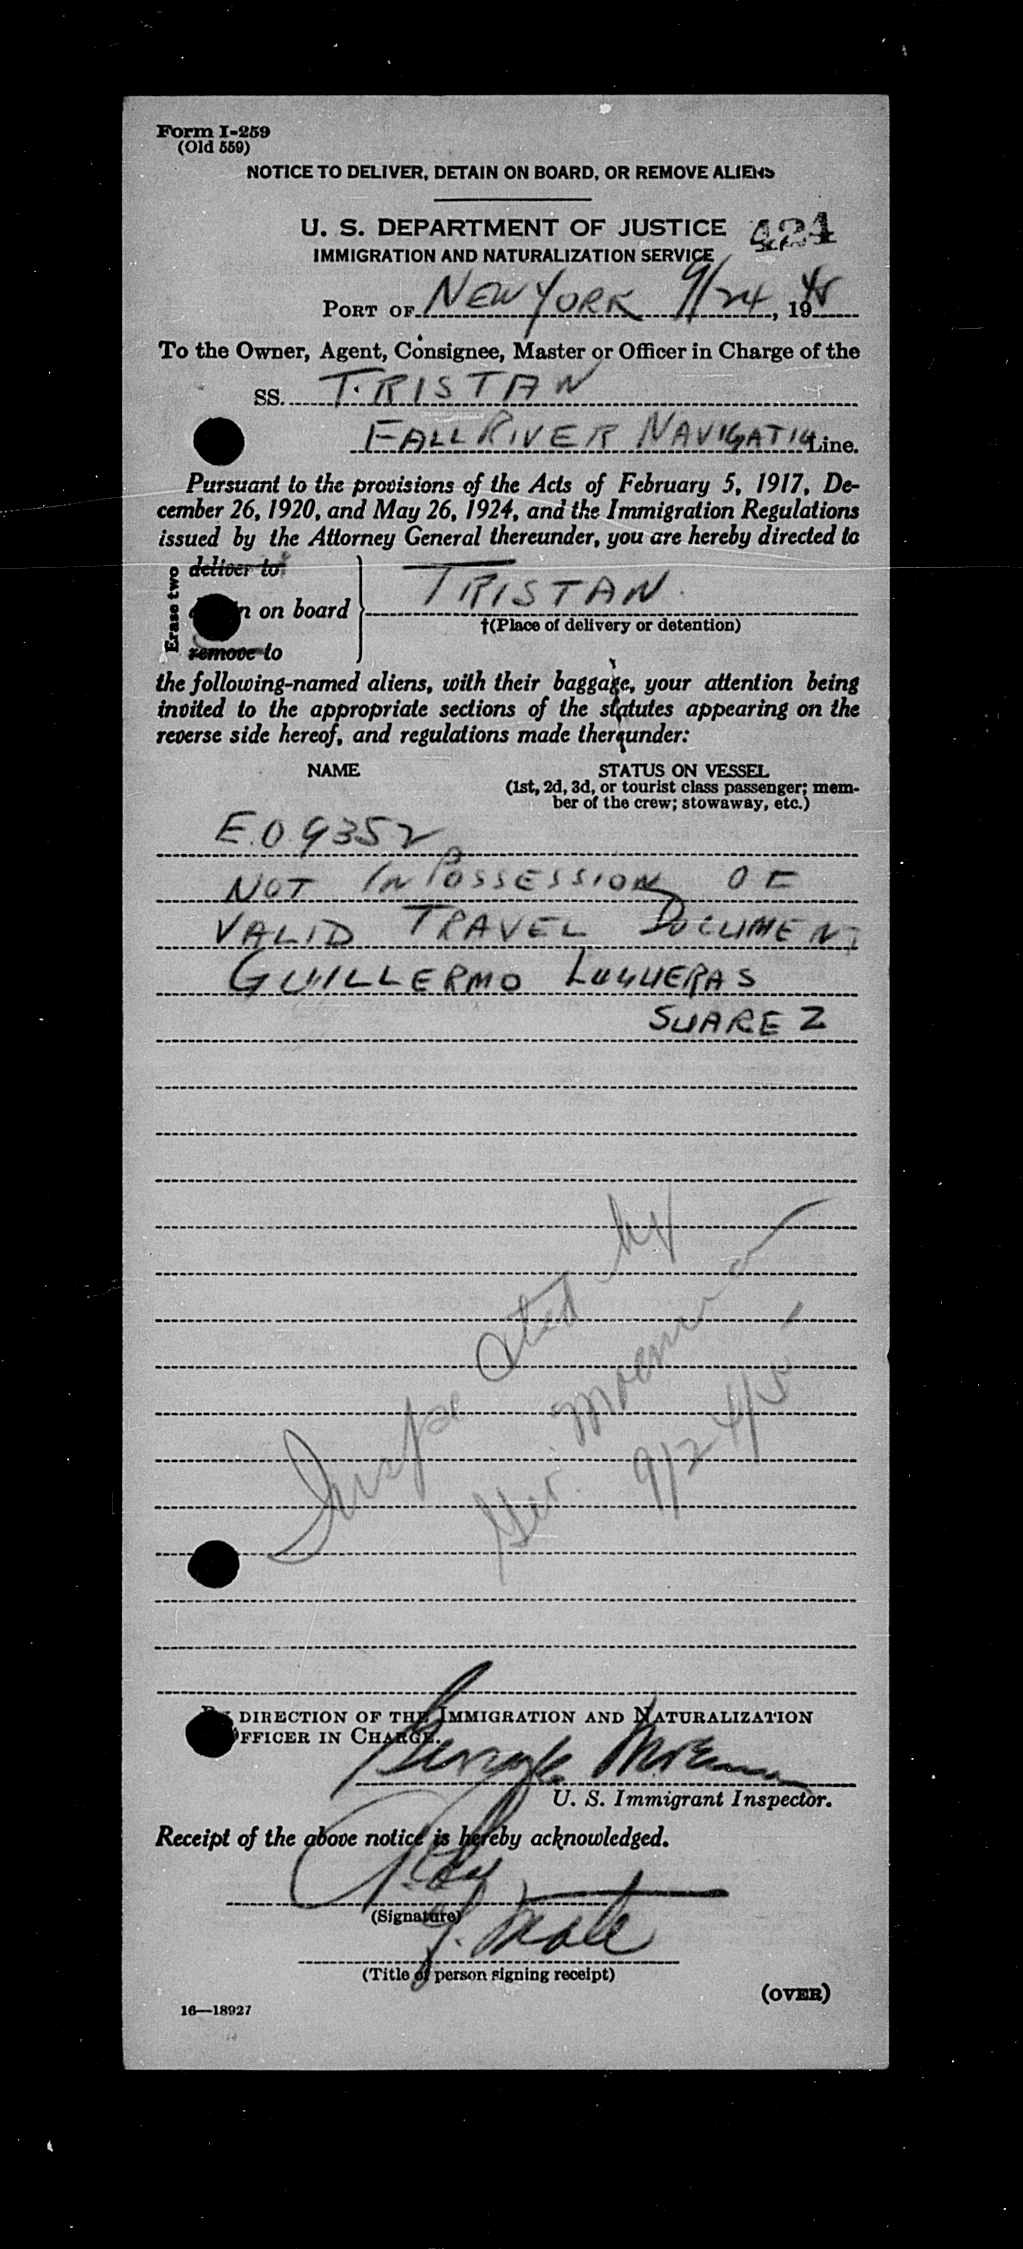 Form I-259
(Old 559)
NOTICE TO DELIVER, DETAIN ON BOARD, OR REMOVE ALIENS
U. S. DEPARTMENT OF JUSTICE 424
IMMIGRATION AND NATURALIZATION SERVICE
PORT OF NEW YORK 9/24, 1945
To the Owner, Agent, Consignee, Master or Officer in Charge of the
SS. TRISTAN
FALL RIVER NAVIGATIO Line.
Pursuant to the provisions of the Acts of February 5, 1917, De-
cember 26, 1920, and May 26, 1924, and the Immigration Regulations
issued by the Attorney General thereunder, you are hereby directed to
Erase two
deliver to
on board TRISTAN
†(Place of delivery or detention)
remove to
the following-named aliens, with their baggage, your attention being
invited to the appropriate sections of the statutes appearing on the
reverse side hereof, and regulations made thereunder:
NAME STATUS ON VESSEL
(1st, 2d, 3d, or tourist class passenger; mem-
ber of the crew; stowaway, etc.)
E.O 9352
NOT IN POSSESSION OF
VALID TRAVEL DOCUMENT
GUILLERMO LUGUERAS
SUAREZ
by
9/24/45
By DIRECTION OF THE IMMIGRATION AND NATURALIZATION
OFFICER IN CHARGE.
George
U. S. Immigrant Inspector.
Receipt of the above notice is hereby acknowledged.
(Signature)
(Title of person signing receipt)
(OVER)
16—18927